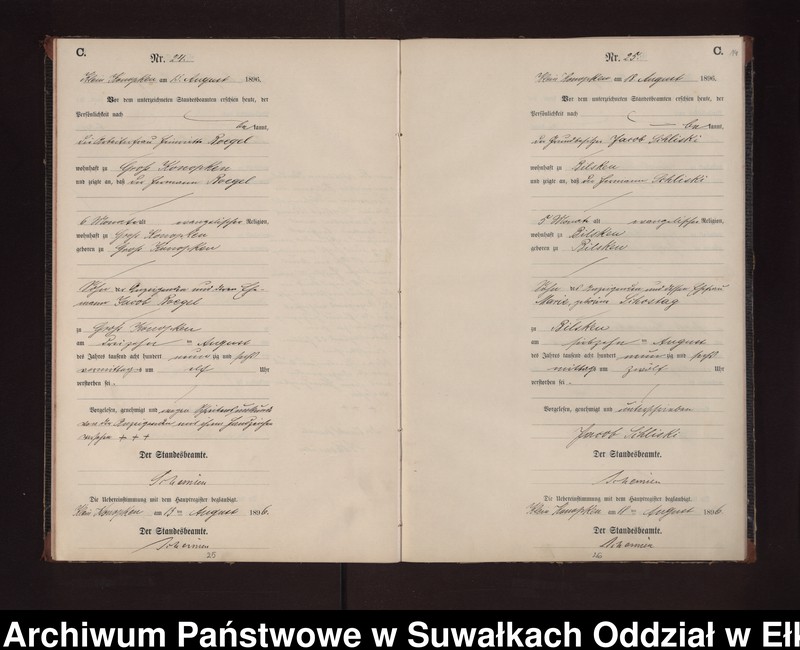 C.
Nr. 24.
Klein Konopken am August 1896.
Vor dem unterzeichneten Standesbeamten erschien heute, der
Persönlichkeit nach
be kannt,
die Arbeiterfrau Henriette Roegel
wohnhaft zu Groß Konopken
und zeigte an, daß der Hermann Roegel
6 Monate alt evangelischer Religion,
wohnhaft zu Groß Konopken
geboren zu Groß Konopken
Sohn der Anzeigenden und deren Ehe-
mann Jacob Roegel
zu Groß Konopken
am dreizehn ten August
des Jahres tausend acht hundert neun zig und sechs
vormittags um elf Uhr
verstorben sei.
Vorgelesen, genehmigt und wegen
von der Anzeigenden mit ihrem Handzeichen
versehen + + +
Der Standesbeamte.
Die Uebereinstimmung mit dem Hauptregister beglaubigt.
Klein Konopken am August 1896.
Der Standesbeamte.
25
C.
Nr. 25.
Klein Konopken am 18 August 1896.
Vor dem unterzeichneten Standesbeamten erschien heute, der
Persönlichkeit nach
be kannt,
der Grundbesitzer Jacob Schliski
wohnhaft zu Bilsken
und zeigte an, daß der Hermann Schliski
5 Monat alt evangelischer Religion,
wohnhaft zu Bilsken
geboren zu Bilsken
Sohn des Anzeigenden und dessen Ehefrau
Marie, geborene Schostag
zu Bilsken
am siebzehn ten August
des Jahres tausend acht hundert neun zig und sechs
mittags um zwölf Uhr
verstorben sei.
Vorgelesen, genehmigt und unterschrieben
Jacob Schliski
Der Standesbeamte.
Die Uebereinstimmung mit dem Hauptregister beglaubigt.
Klein Konopken am August 1896.
Der Standesbeamte.
26
Archiwum Państwowe w Suwałkach Oddział w Ełk